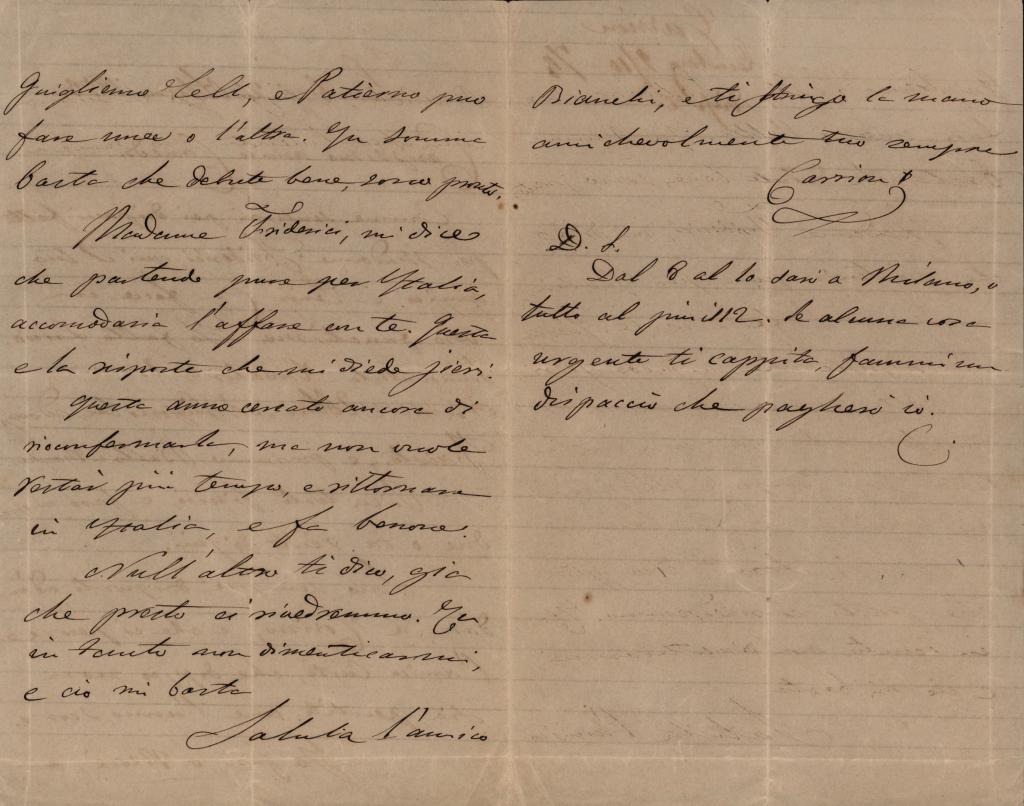 Guiglielmo Tell, e Patierno può
fare uno o l'altro. In somma
basta che debute bene, sono pronto.
Madame Friderici, mi dice
che partendo pure per Ytalia,
accomodaria l'affare con te. Questa
e la risposta che mi diede jieri.
Questa anno cercato ancora di
riconfermarla, ma non vuole
restar più tempo, e rittornare
in Ytalia, e fa benone.
Null'altro ti dico, gia
che presto ci rivedremmo. Tu
in tanto non dimenticarmi,
e ciò mi basta
Saluta l'amico
Bianchi, e ti stringo la mano
amichevolmente tuo sempre
Carrion
D. S.
Dal 8 al 10 sarò a Milano, o
tutto al più il 12. Se alcuna cosa
urgente ti cappita, fammi un
dispaccio che pagherò io.
C.